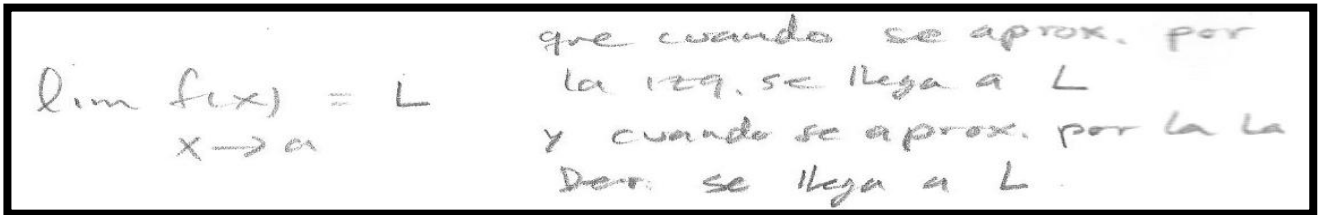 lim f(x) = L
x → a
que cuando se aprox. por
la izq. se llega a L
y cuando se aprox. por la la
Der. se llega a L.